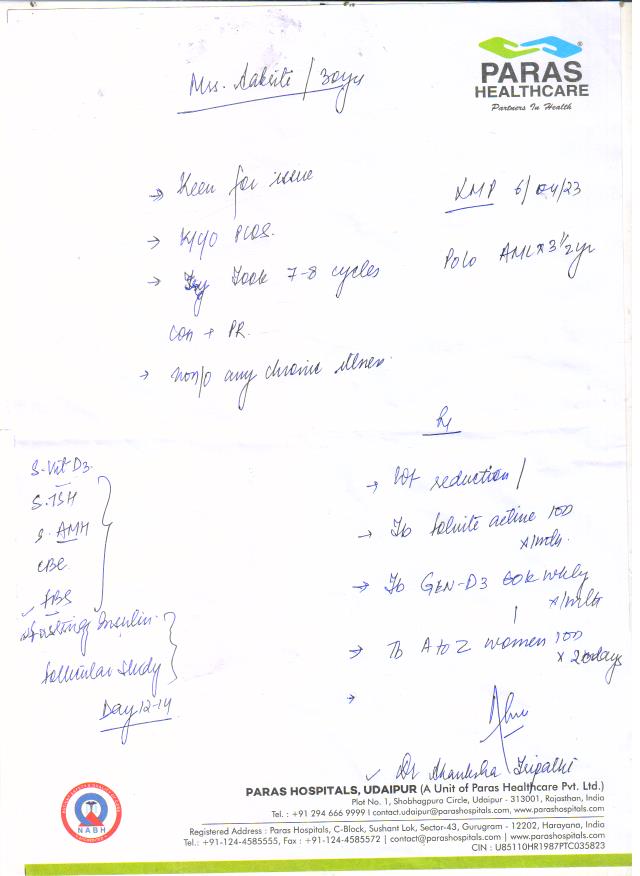 PARAS
HEALTHCARE
Partners In Health
Mrs. Aakriti / 30yrs
→ Keen for issue
LMP 6/04/23
→ K/y/o PCOS.
P0L0 AML x 3 1/2 yr
→ Took 7-8 cycles
+ PR.
→ any chronic illness.
Rx
→ Wt reduction /
→ Tb Folvite active 1OD
x 1/mth.
→ Tb GEN-D3 60k wkly
x 1/mth
→ Tb A to Z women 1OD
x 20days
→
S. Vit D3.
S. TSH
S. AMH
CBC
✓ FBS
Fasting Insulin.
Follicular Study
Day 12-14
✓ Dr Akanksha Tripathi
PARAS HOSPITALS, UDAIPUR (A Unit of Paras Healthcare Pvt. Ltd.)
Plot No. 1, Shobhagpura Circle, Udaipur - 313001, Rajasthan, India
Tel. : +91 294 666 9999 | contact.udaipur@parashospitals.com, www.parashospitals.com
Registered Address : Paras Hospitals, C-Block, Sushant Lok, Sector-43, Gurugram - 12202, Harayana, India
Tel.: +91-124-4585555, Fax : +91-124-4585572 | contact@parashospitals.com | www.parashospitals.com
CIN : U85110HR1987PTC035823
NABH